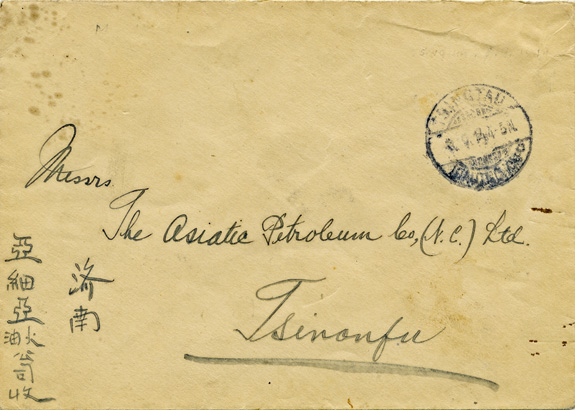 Messrs
The Asiatic Petroleum Co, (N.C.) Ltd.
Tsinanfu
濟南
亞細亞火油公司收